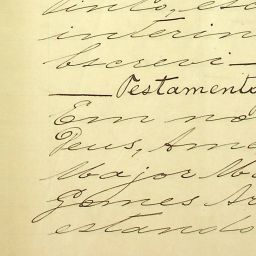 tinto, esc
interin
bscrevi —
— Testamento
Em no
Deus, Ame
Major Ma
Gomes Ar
estando